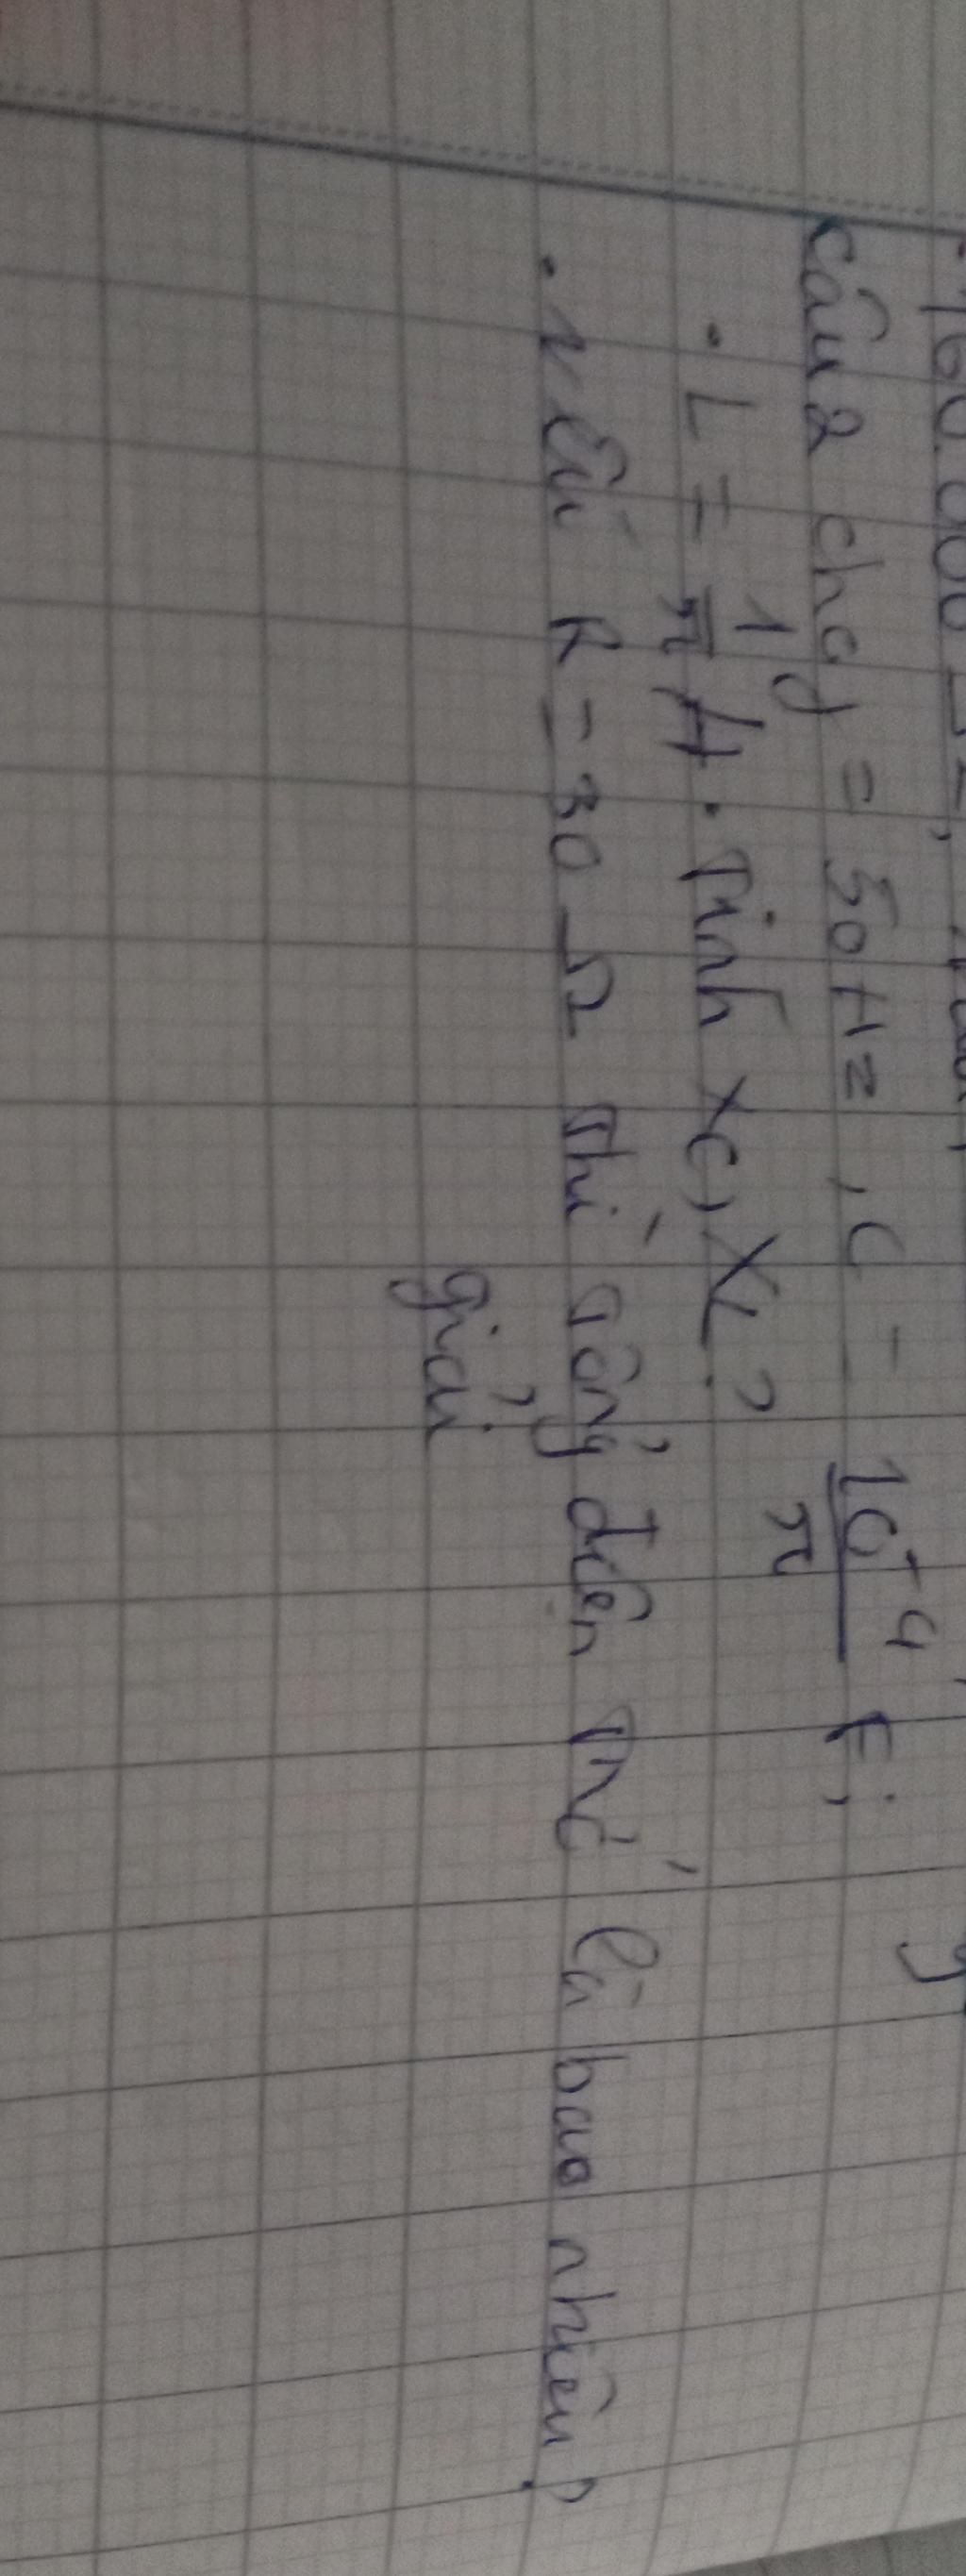 Câu 2 cho f = 50Hz, C = 10^-4/π F;
• L = 1/π H. Tính Xc, XL?
• nếu R = 30 Ω thì tổng điện trở là bao nhiêu?
giải